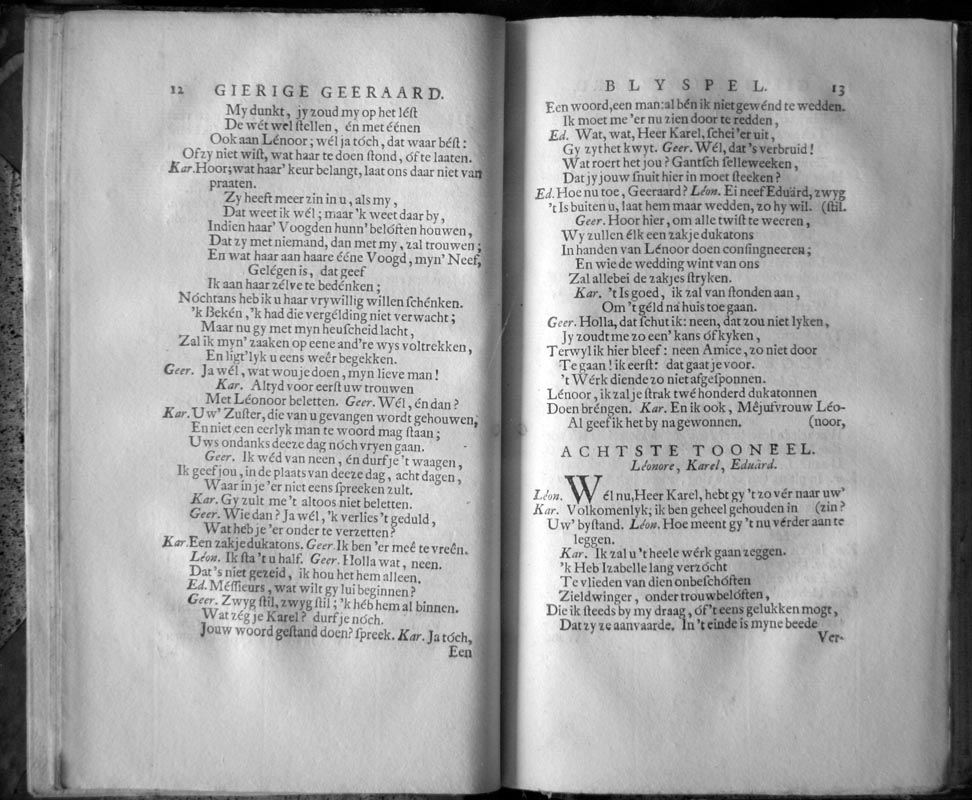 12 GIERIGE GEERAARD.
My dunkt, jy zoud my op het léſt
De wét wel ſtellen, én met éénen
Ook aan Lénoor; wél ja tóch, dat waar béſt:
Of zy niet wiſt, wat haar te doen ſtond, óf te laaten.
Kar. Hoor; wat haar' keur belangt, laat ons daar niet van
praaten.
Zy heeft meer zin in u, als my,
Dat weet ik wél; maar 'k weet daar by,
Indien haar' Voogden hunn' belóften houwen,
Dat zy met niemand, dan met my, zal trouwen;
En wat haar aan haare ééne Voogd, myn' Neef,
Gelégen is, dat geef
Ik aan haar zélve te bedénken;
Nóchtans heb ik u haar vrywillig willen ſchénken.
'k Bekén, 'k had die vergélding niet verwacht;
Maar nu gy met myn heuſcheid lacht,
Zal ik myn' zaaken op eene and're wys voltrekken,
En ligt'lyk u eens weêr begekken.
Geer. Ja wél, wat wou je doen, myn lieve man!
Kar. Altyd voor eerſt uw trouwen
Met Léonoor beletten. Geer. Wél, én dan?
Kar. Uw' Zuſter, die van u gevangen wordt gehouwen,
En niet een eerlyk man te woord mag ſtaan;
Uws ondanks deeze dag nóch vryen gaan.
Geer. Ik wéd van neen, én durf je 't waagen,
Ik geef jou, in de plaats van deeze dag, acht dagen,
Waar in je 'er niet eens ſpreeken zult.
Kar. Gy zult me 't altoos niet beletten.
Geer. Wie dan? Ja wél, 'k verlies 't geduld,
Wat heb je 'er onder te verzetten?
Kar. Een zakje dukatons. Geer. Ik ben 'er meê te vreên.
Léon. Ik ſta 't u half. Geer. Holla wat, neen.
Dat's niet gezeid, ik hou het hem alleen.
Ed. Méſſieurs, wat wilt gy lui beginnen?
Geer. Zwyg ſtil, zwyg ſtil; 'k héb hem al binnen.
Wat zég je Karel? durf je nóch.
Jouw woord geſtand doen? ſpreek. Kar. Ja tóch,
Een
BLYSPEL. 13
Een woord, een man: al bén ik niet gewénd te wedden.
Ik moet me 'er nu zien door te redden,
Ed. Wat, wat, Heer Karel, ſchei 'er uit,
Gy zyt het kwyt. Geer. Wél, dat 's verbruid!
Wat roert het jou? Gantſch ſelleweeken,
Dat jy jouw ſnuit hier in moet ſteeken?
Ed. Hoe nu toe, Geeraard? Léon. Ei neef Eduärd, zwyg
't Is buiten u, laat hem maar wedden, zo hy wil. (ſtil.
Geer. Hoor hier, om alle twiſt te weeren,
Wy zullen élk een zakje dukatons
In handen van Lénoor doen conſingneeren;
En wie de wedding wint van ons
Zal allebei de zakjes ſtryken.
Kar. 't Is goed, ik zal van ſtonden aan,
Om 't géld na huis toe gaan.
Geer. Holla, dat ſchut ik: neen, dat zou niet lyken,
Jy zoudt me zo een' kans óf kyken,
Terwyl ik hier bleef: neen Amice, zo niet door
Te gaan! ik eerſt: dat gaat je voor.
't Wérk diende zo niet afgeſponnen.
Lénoor, ik zal je ſtrak twé honderd dukatonnen
Doen bréngen. Kar. En ik ook, Méjufvrouw Léo-
Al geef ik het by na gewonnen. (noor,
ACHTSTE TOONEEL.
Léonore, Karel, Eduärd.
Léon. Wél nu, Heer Karel, hebt gy 't zo vér naar uw'
Kar. Volkomenlyk; ik ben geheel gehouden in (zin?
Uw' byſtand. Léon. Hoe meent gy 't nu vérder aan te
leggen.
Kar. Ik zal u 't heele wérk gaan zeggen.
'k Heb Izabelle lang verzócht
Te vlieden van dien onbeſchóften
Zieldwinger, onder trouwbelóften,
Die ik ſteeds by my draag, óf 't eens gelukken mogt,
Dat zy ze aanvaarde. In 't einde is myne beede
Ver-